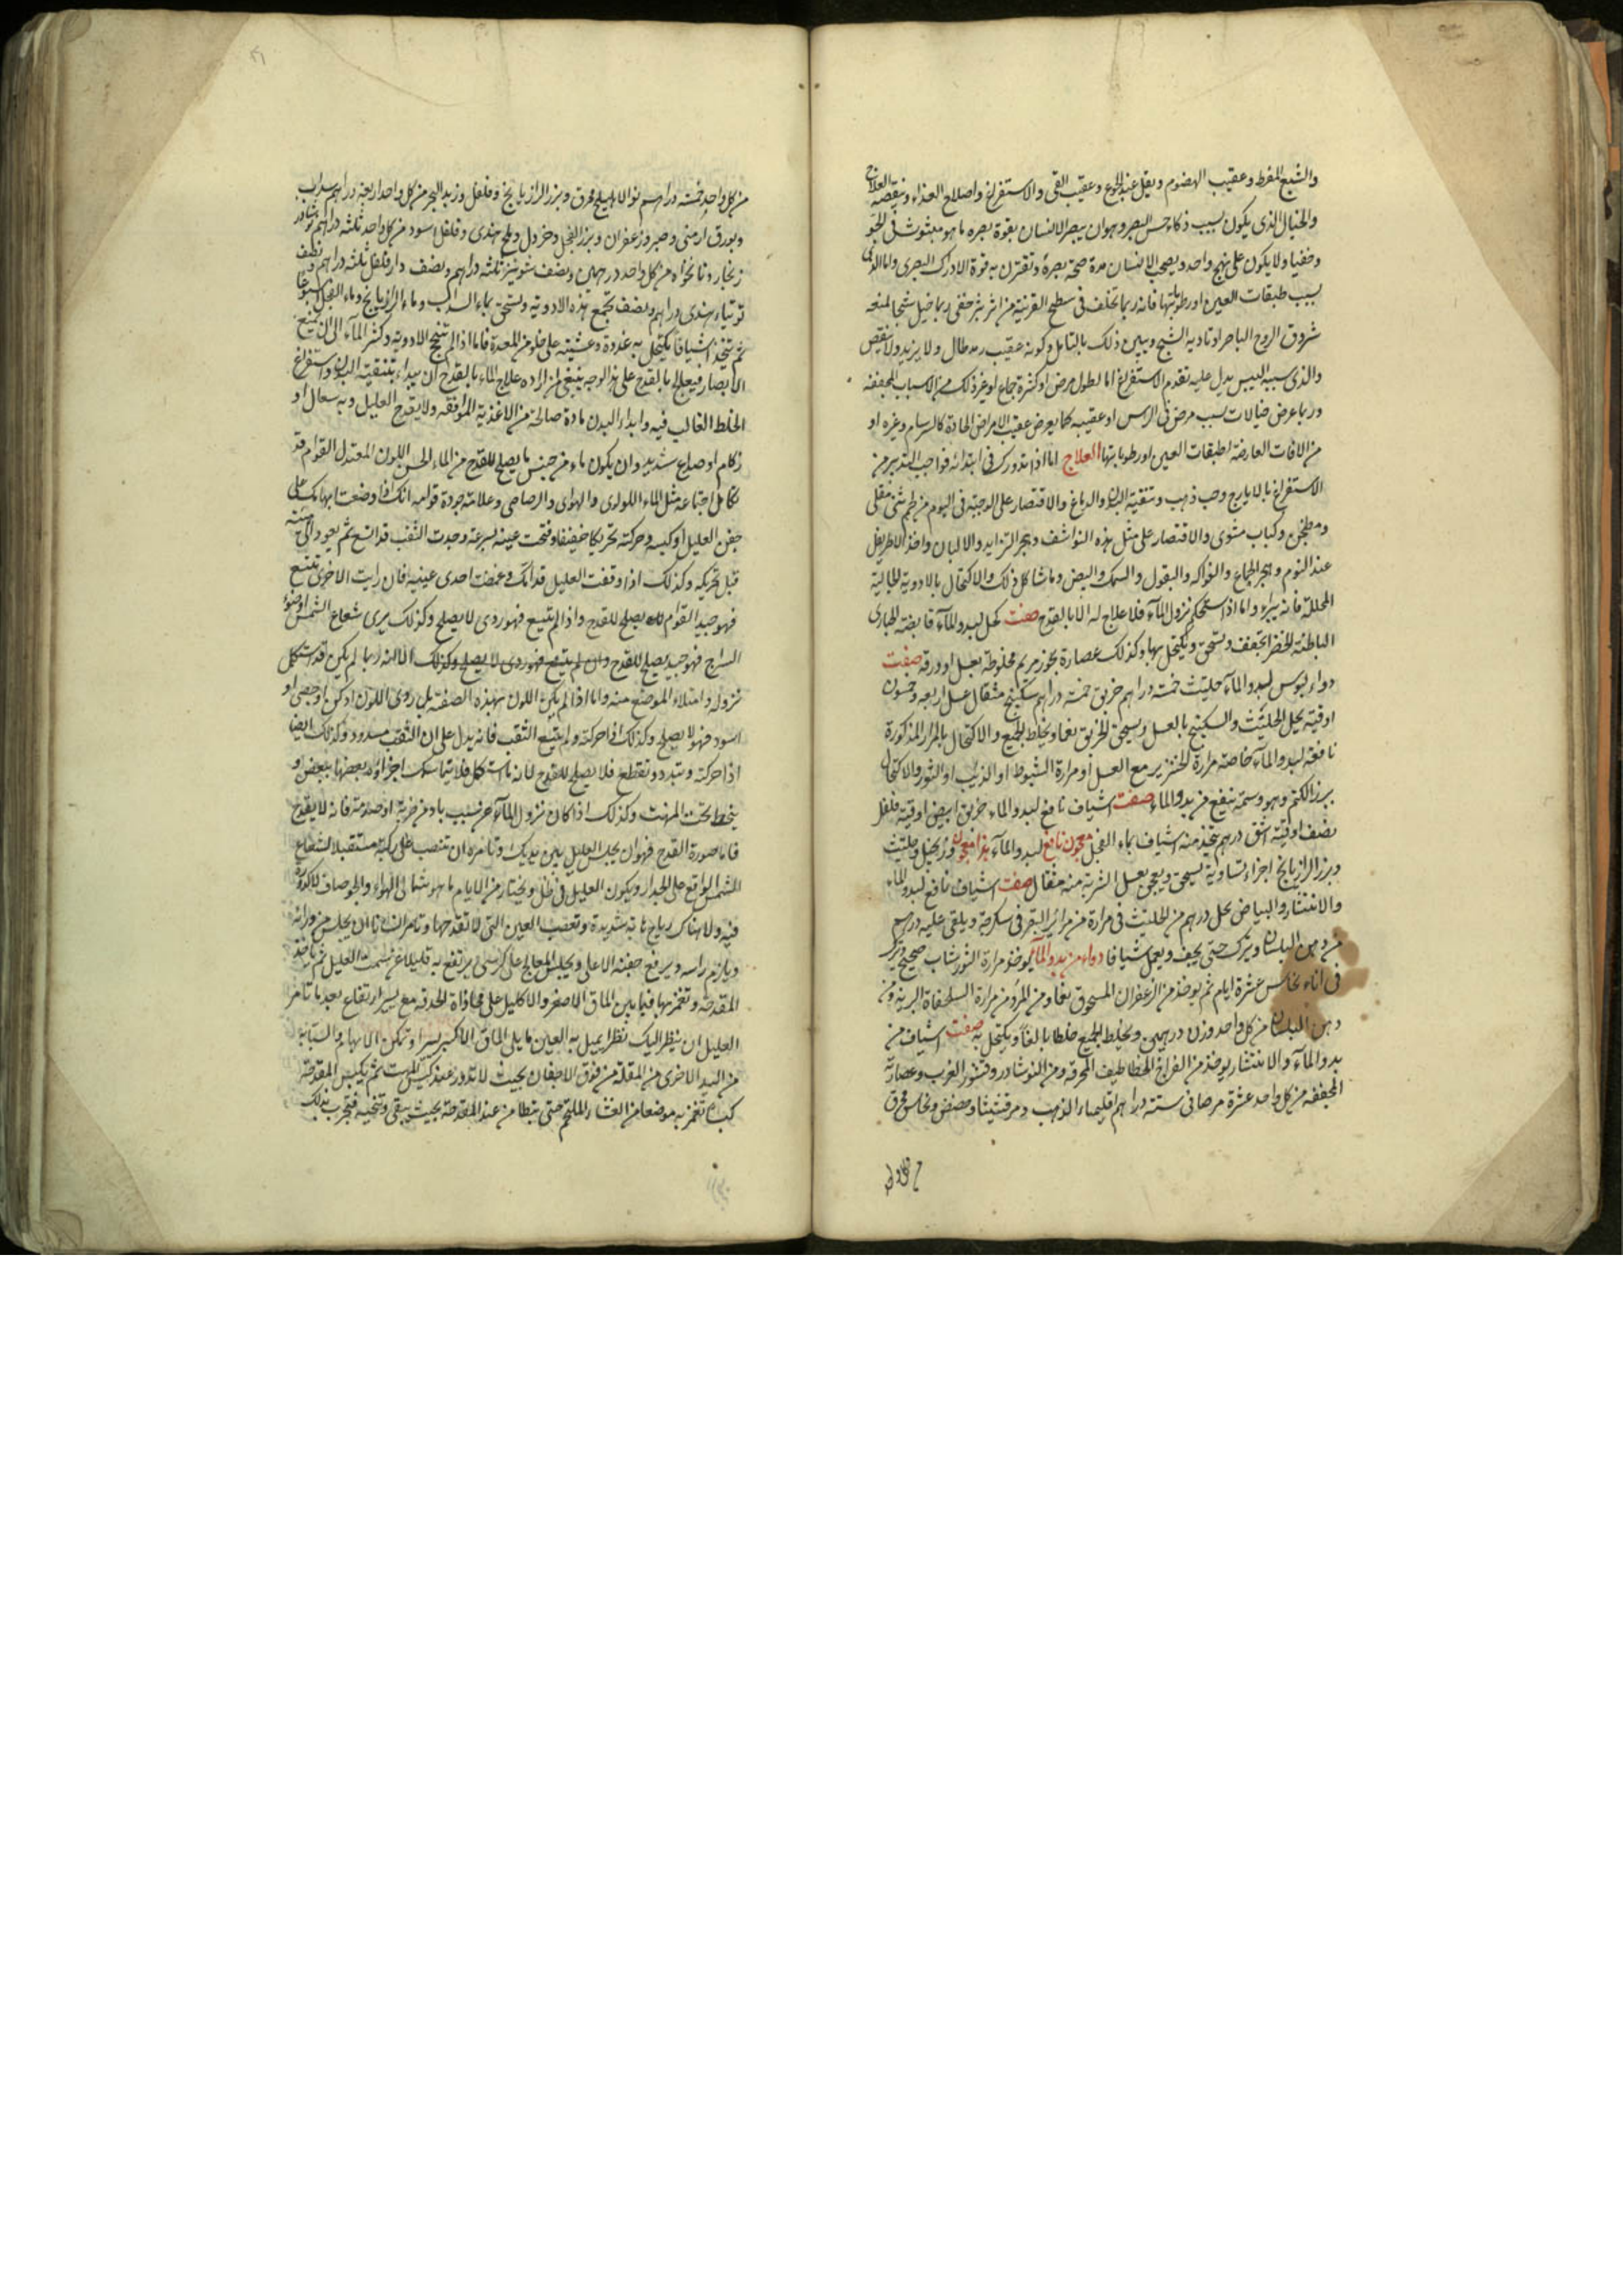 والشبع المفرط وعقيب الهضوم ويقل عند الجوع وعقيب القى والاستفراغ واصلاح الغذاء وينقصه العلاج
والخيال الذى يكون بسبب ذكاء حس البصر وهوان يبصر الانسان بقوة بصره ما هو مبثوث فى الجو
وخفيا ولا يكون على نهج واحد ويصحب الانسان مدة صحة بصره وتقترن به قوة الادراك البصرى واما الذى
بسبب طبقات العين اورطوبتها فانه ربما تخلف فى سطح القرنية من اثر بثر خفى ربما خيل شبحا لمنعه
شروق الروح الباصر او تاديه الشبح ويبين ذلك بالتامل وكونه عقيب رمد طال ولا يزيد ولا ينقص
والذى سببه اليبس يدل عليه تقدم الاستفراغ اما لطول مرض او كثرة جماع او غير ذلك من الاسباب المجففه
وربما عرض خيالات بسبب مرض فى الراس او عقيبه كما يعرض عقيب الامراض الحادة كالسرسام وغيره او
من الافات العارضة لطبقات العين اورطوباتها العلاج اما اذا تدورك فى ابتدائه فواجب التدبير من
الاستفراغ بالايارج وحب ذهب وتنقية البدن والدماغ والاقتصار على الوجبة فى اليوم من طهم شئى مقلى
ومطجن وكباب مشوى والاقتصار على مثل هذه النواشف وهجر الثرايد والالبان واخذ الاطريفل
عند النوم وهجر الجماع والفواكه والبقول والسمك والبيض وما شاكل ذلك والاكتحال بالادوية الجالية
المحللة فانه يبراء واما اذا استحكم نزول الماء فلا علاج له الا بالقدح صفت كحل لبدو الماء قابضة الحبارى
الباطنة الخضرا تجفف وتسحق ويكتحل بها وكذلك عصارة بخور مريم مخلوطة بعسل او ورقه صفت
دواء بولس لبدو الماء حلتيث خمسة دراهم خربق خمسة دراهم سكبينج مثقال عسل اربعه وخمسون
اوقية يحل الحلتيث والسكبينج بالعسل ويسحق الخربق نعما ويخلط الجميع والاكتحال بالمرار المذكورة
نافعة لبدو الماء خاصة مرارة الخنزير مع العسل أو مرارة الشبوط او الذئب او الثور والاكتحال
ببزر الكتم وهو وسمة ينفع من بدو الماء صفت اشياف نافع لبدو الماء خربق ابيض اوقية فلفل
نصف اوقية اشق درهم يتخذ منه اشياف بماء الفجل معجون نافع لبدو الماء وزنجبيل وحلتيث
وبزر الرازيانج اجزاء متساوية تسحق ويعجن بعسل الشربة منه مثقال صفت اشياف نافع لبدو الماء
والانتشار والبياض يحل درهم من الحلتيث فى مرارة من مرائر البقر فى سكرجة ويلقى عليه درهم
من دهن البلسان ويترك حتى يجف ويعمل شيافا دواء من بدو الماء يوخذ مرارة الثور شاب صحيح ويترك
فى اناء نحاس عشرة ايام ثم يوخذ من الزعفران المسحوق نعما ومن المر ومن مرارة السلحفاة البرية ومن
دهن البلسان من كل واحد وزن درهمين ويخلط الجميع خلطا بالغا ويكتحل به صفت اشياف من
بدو الماء والانتشار يوخذ من الفراخ الخطاطيف المحرقه ومن النوشادر وقشور الغرب وعصارته
المجففه من كل واحد عشرة مرهانى ستة دراهم اقليمياء الذهب ومرقشيثا وحضض ونحاس محرق
من كل واحد خمسة دراهم نوا الاهليلج محرق وبزر الرازيانج وفلفل وزبد البحر من كل واحد اربعة دراهم سداب
وبورق ارمنى وصبر وزعفران وبزر الفجل وخردل وملح هندى وفلفل اسود من كل واحد ثلثه دراهم نوشادر
زنجار ونانخواه من كل واحد درهمين ونصف شونيز ثلثه دراهم ونصف دار فلفل ثلثه دراهم ونصف
توتياء هندى دراهم ونصف تجمع هذه الادويه وتسحق بماء السداب وماء الرازيانج وماء الفجل اسبوعا
ثم يتخذ اشيافا يكتحل به غدوة وعشية على خلو من المعدة فاما اذا لم تنجح الادوية وكثر الماء الى ان يمنع
الابصار فيعالج بالقدح على هذا الوجه ينبغى لمن اراده علاج الماء بالقدح ان يبداء بتنقية البدن واستفراغ
الخلط الغالب فيه وابداء البدن مادة صالحة من الاغذية الموافقه ولا يقدح العليل وبه سعال او
زكام او صداع شديد وان يكون ماءه من جنس ما يصلح للقدح من الماء الحسن اللون المعتدل القوام قد
تكامل اجتماعه مثل الماء اللولوى والهوائى والرصاصى وعلامة جودة قوامه انك اذا وضعت ابهامك على
جفن العليل او كبسه وحركته تحريكا خفيفا وفتحت عينه بسرعة وجدت الثقب قد اتسع ثم يعود الى هيئته
قبل تحريكه وكذلك اذا وقفت العليل قدامك وغمضت احدى عينيه فان رايت الاخرى تتسع
فهو جيد القوام يصلح للقدح واذا لم يتسع فهو ردى لا يصلح وكذلك يرى شعاع الشمس او ضوء
السراج فهو جيد يصلح للقدح وان لم يتسع فهو ردى لا يصلح وكذلك الا انه ربما لم يكن قد استكمل
نزوله وامتلاء الموضع منه واما اذا لم يكن اللون بهذه الصفة بل ردى اللون ادكن او جصى او
اسود فهو لا يصلح وكذلك اذا حركته ولم يتسع الثقب فانه يدل على ان الثقب مسدود وكذلك ايضا
اذا حركته وتبدد وتقطع فلا يصلح للقدح لانه ما استكمل فلا يتماسك اجزاؤه بعضها ببعض او
ينحط تحت المهت وكذلك اذا كان نزول الماء من سبب باد من ضربة او صدمة فانه لا يقدح
فاما صورة القدح فهو ان يجلس العليل بين يديك وتامره ان تنصب على ركبته مستقبلا لشعاع
الشمس الواقع على الجدار ويكون العليل فى ظل ويختار من الايام ما هو شمالى الهواء والجو صاف لا كدورة
فيه ولا هناك رياح هابة شديدة وتعصب العين التى لا تقدحها وتامر انسانا ان يجلس من ورائه
ويلزم راسه ويرفع جفنه الاعلى ويجلس المعالج على كرسى يرتفع به قليلا عن سمت العليل ثم ياخذ
المقدحة وتغمز بها فيما بين الماق الاصغر والاكليل على محاذاة الحدقه مع يسير ارتفاع بعد ما تامر
العليل ان ينظر اليك نظرا يميل به العين ما يلى الماق الاكبر يسيرا وتمكن الابهام والسبابة
من اليد الاخرى من المقلة من فوق الاجفان بحيث لا تدور عند كبس المهت ثم يكبس المقدحة
كبسا تغمز به موضعا من الغشاء الملتحم حتى يتطامن عند المقدحة بحيث يبقى وتنحيه فتجرب بذلك